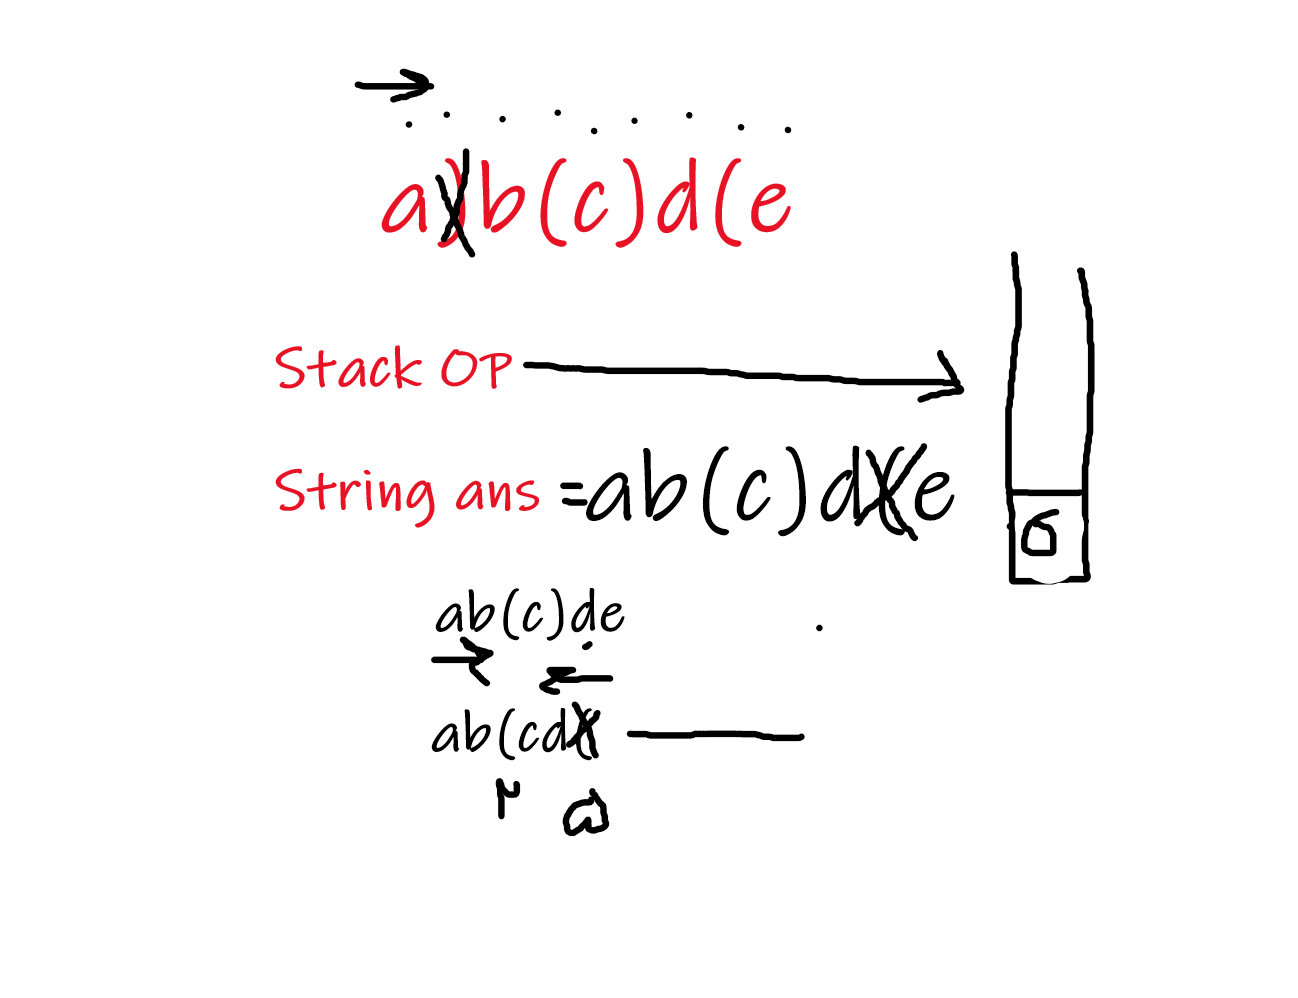 a)b(c)d(e
Stack OP
String ans =ab(c)d(e
ab(c)de
ab(cd(